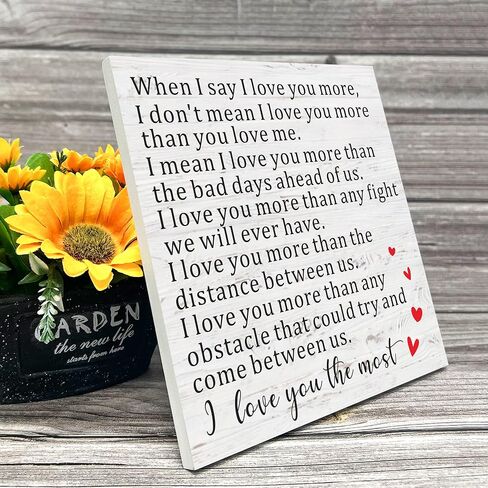 When I say I love you more,
I don't mean I love you more
than you love me.
I mean I love you more than
the bad days ahead of us.
I love you more than any fight
we will ever have.
I love you more than the
distance between us.
I love you more than any
obstacle that could try and
come between us.
I love you the most
GARDEN
the new life
starts from here